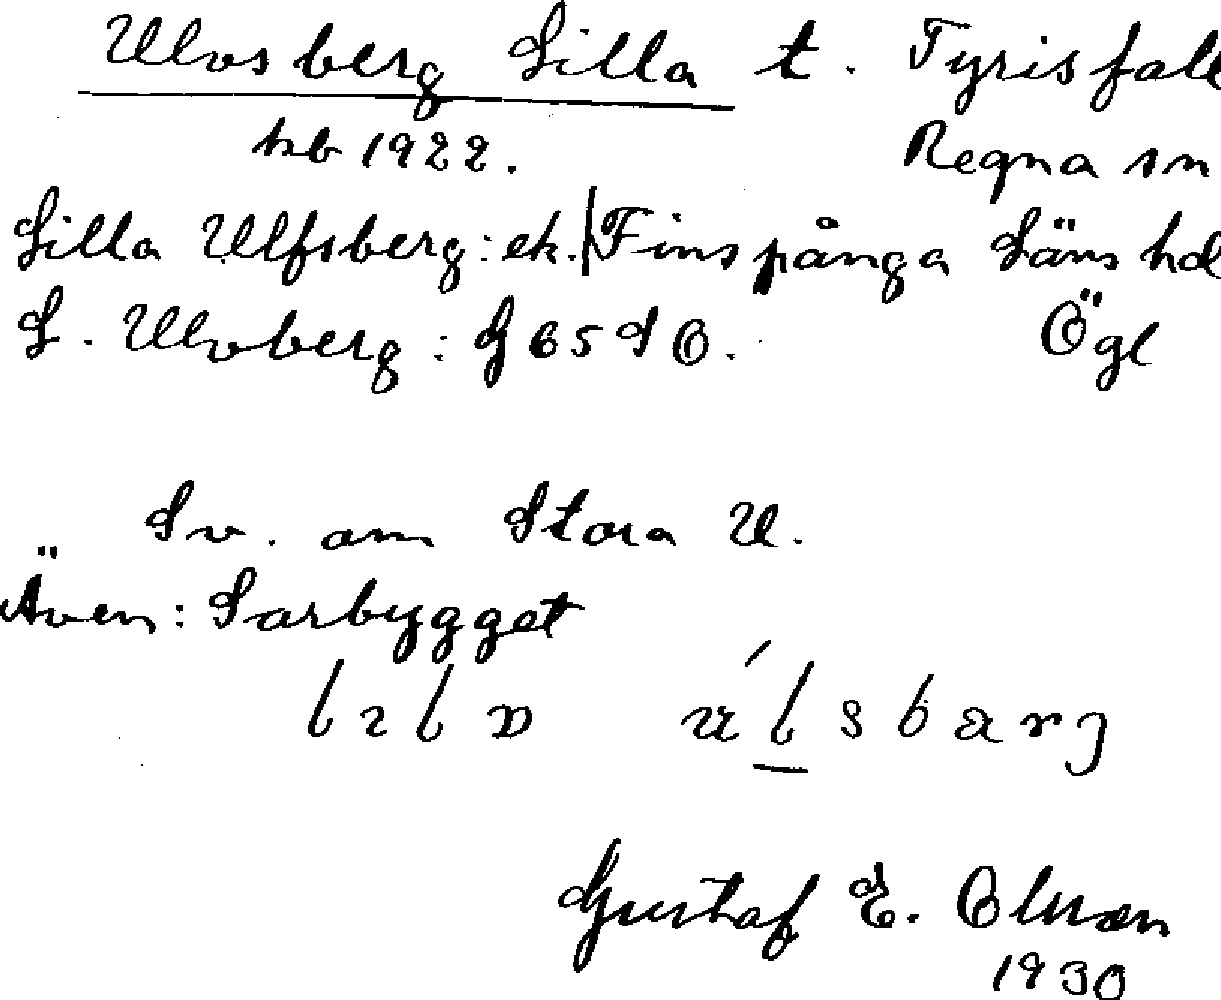 Ulvsberg Lilla t. Tyrisfall
hb 1922. Regna sn
Lilla Ulfsberg: ek. | Finspånga Läns hd
L. Ulvberg: G 65 SO. Ögl
Sv. om Stora U.
Även: Sarbygget
Gustaf E. Olsson
1930